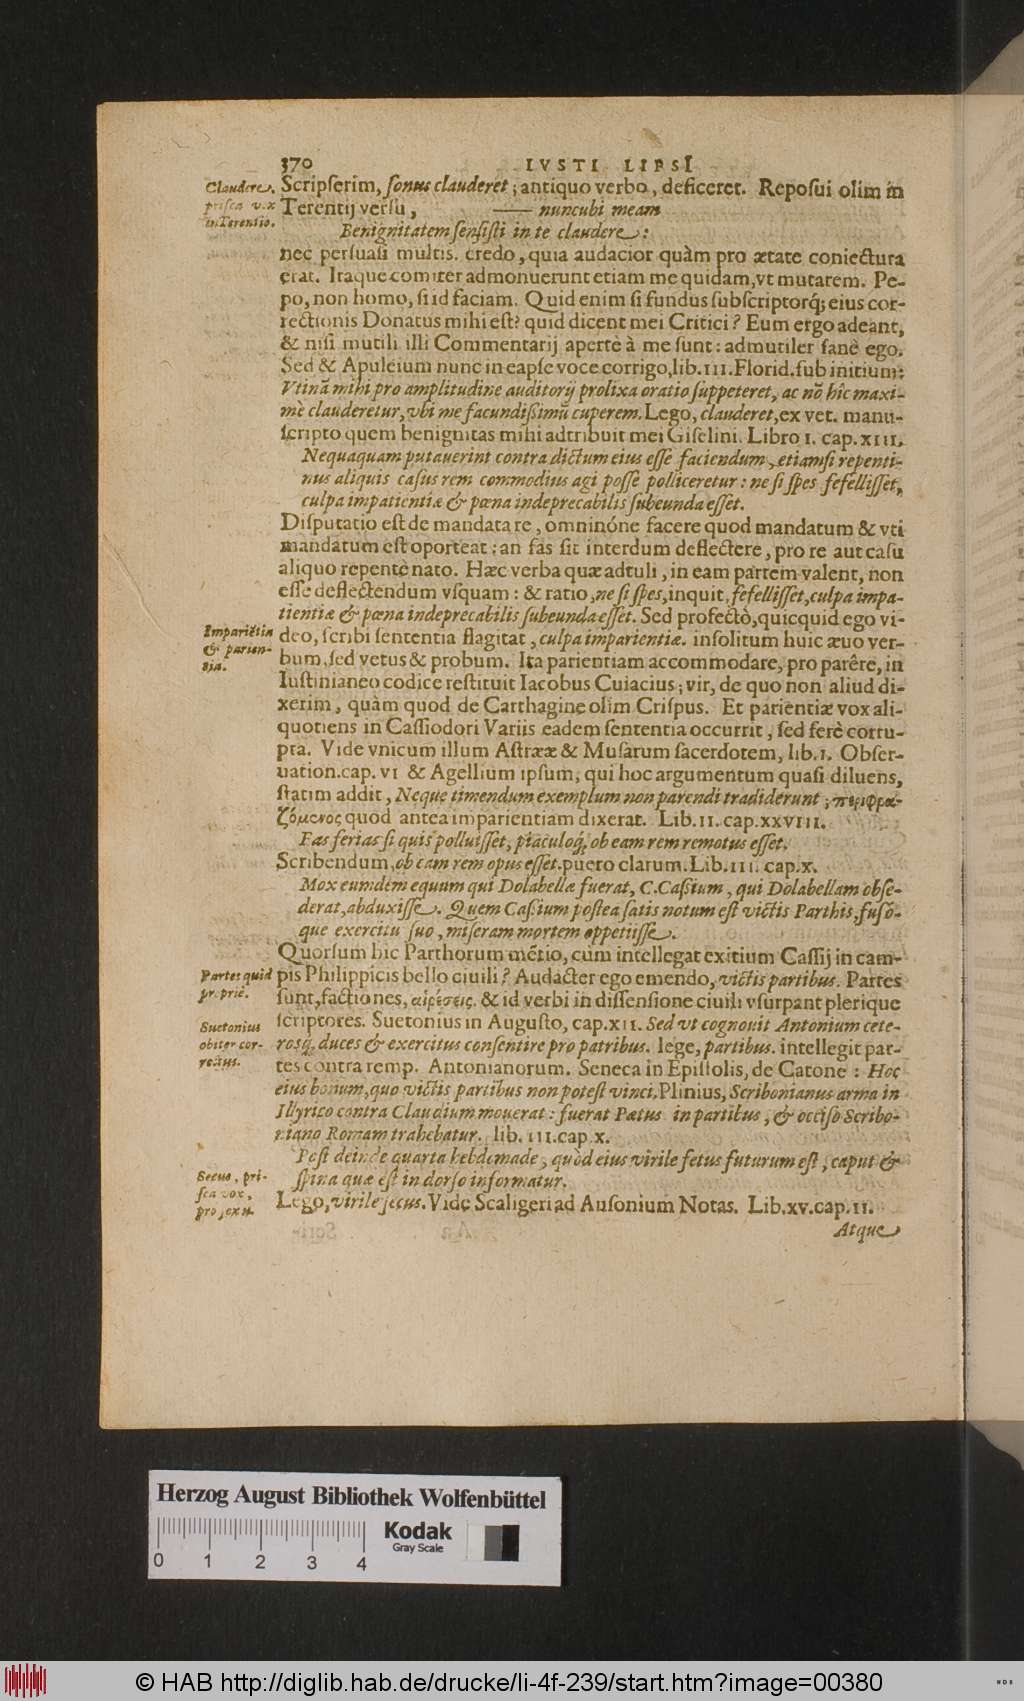 370 IVSTI LIPSI
Claudere,
prisca vox
in Terentio.
Scripserim, sonus clauderet; antiquo verbo, deficeret. Reposui olim in
Terentij versu, —— nuncubi meam
Benignitatem sensisti in te claudere:
nec persuasi multis. credo, quia audacior quàm pro ætate coniectura
erat. Itaque comiter admonuerunt etiam me quidam, vt mutarem. Pe-
po, non homo, si id faciam. Quid enim si fundus subscriptorq́; eius cor-
rectionis Donatus mihi est? quid dicent mei Critici? Eum ergo adeant,
& nisi mutili illi Commentarij apertè à me sunt: admutiler sanè ego.
Sed & Apuleium nunc in eapse voce corrigo, lib. III. Florid. sub initium:
Vtinā mihi pro amplitudine auditorij prolixa oratio suppeteret, ac nō hîc maxi-
mè clauderetur, vbi me facundissimū cuperem. Lego, clauderet, ex vet. manu-
scripto quem benignitas mihi adtribuit mei Giselini. Libro I. cap. XIII.
Nequaquam putauerint contra dictum eius esse faciendum, etiamsi repenti-
nus aliquis casus rem commodius agi posse polliceretur: ne si spes fefellisset,
culpa impatientiæ & pœna indeprecabilis subeunda esset.
Disputatio est de mandata re, omninóne facere quod mandatum & vti
mandatum est oporteat: an fas sit interdum deflectere, pro re aut casu
aliquo repente nato. Hæc verba quæ adtuli, in eam partem valent, non
esse deflectendum vsquam: & ratio, ne si spes, inquit, fefellisset, culpa impa-
tientiæ & pœna indeprecabilis subeunda esset. Sed profectò, quicquid ego vi-
Impariētia
& parien-
tia.
deo, scribi sententia flagitat, culpa imparientiæ. insolitum huic æuo ver-
bum, sed vetus & probum. Ita parientiam accommodare, pro parêre, in
Iustinianeo codice restituit Iacobus Cuiacius; vir, de quo non aliud di-
xerim, quàm quod de Carthagine olim Crispus. Et parientiæ vox ali-
quotiens in Cassiodori Variis eadem sententia occurrit, sed ferè corru-
pta. Vide vnicum illum Astrææ & Musarum sacerdotem, lib. I. Obser-
uation. cap. VI & Agellium ipsum, qui hoc argumentum quasi diluens,
statim addit, Neque timendum exemplum non parendi tradiderunt; περιφρα-
ζόμενος quod antea imparientiam dixerat. Lib. II. cap. XXVIII.
Eas ferias si quis polluisset, piaculoq́, ob eam rem remotus esset.
Scribendum, ob eam rem opus esset. puero clarum. Lib. III. cap. X.
Mox eumdem equum qui Dolabellæ fuerat, C. Cassium, qui Dolabellam obse-
derat, abduxisse. Quem Cassium postea satis notum est victis Parthis, fusó-
que exercitu suo, miseram mortem oppetiisse.
Quorsum hic Parthorum mētio, cùm intellegat exitium Cassij in cam-
Partes quid
propriè.
pis Philippicis bello ciuili? Audacter ego emendo, victis partibus. Partes
sunt, factiones, αἱρέσεις. & id verbi in dissensione ciuili vsurpant plerique
Suetonius
obiter cor-
rectus.
scriptores. Suetonius in Augusto, cap. XII. Sed vt cognouit Antonium cete-
rosq́, duces & exercitus consentire pro patribus. lege, partibus. intellegit par-
tes contra remp. Antonianorum. Seneca in Epistolis, de Catone: Hoc
eius bonum, quo victis partibus non potest vinci. Plinius, Scribonianus arma in
Illyrico contra Claudium mouerat: fuerat Pætus in partibus, & occiso Scribo-
niano Romam trahebatur. lib. III. cap. X.
Post deinde quarta hebdomade, quòd eius virile fetus futurum est, caput &
Secus, pri-
sca vox,
pro sexu.
spina quæ est in dorso informatur.
Lego, virile secus. Vide Scaligeri ad Ausonium Notas. Lib. XV. cap. II.
Atque
Herzog August Bibliothek Wolfenbüttel
Kodak
Gray Scale
0 1 2 3 4
© HAB http://diglib.hab.de/drucke/li-4f-239/start.htm?image=00380